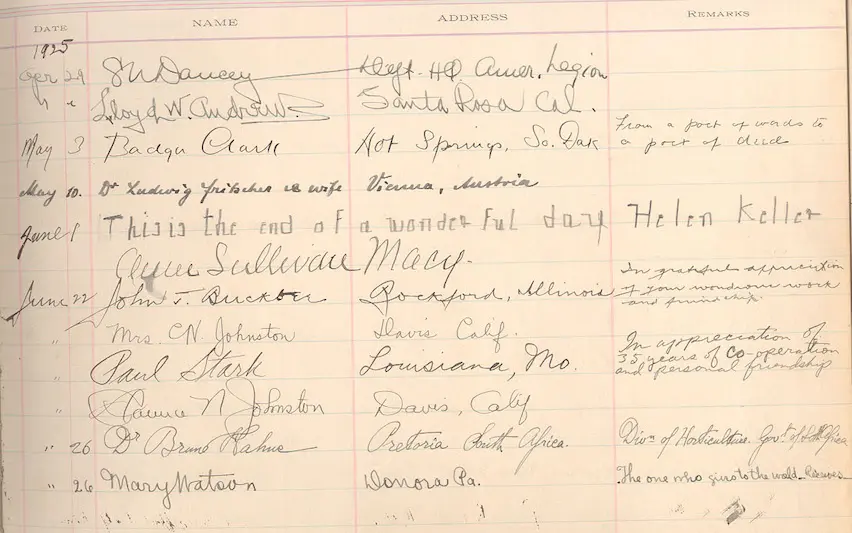 DATE NAME ADDRESS REMARKS
1925
Apr 29 Dancey Dept. HQ. Amer. Legion
" " Lloyd W. Andrews Santa Rosa Cal.
From a poet of words to
May 3 Badger Clark Hot Springs, So. Dak a poet of deed
May 10. Dr Ludwig Fritscher & wife Vienna, Austria
June 1 This is the end of a wonderful day Helen Keller
Anne Sullivan Macy.
In grateful appreciation
June 22 John T. Rockford, Illinois of your wondrous work
and friendship.
" Mrs. C.N. Johnston Davis Calif.
In appreciation of
" Paul Stark Louisiana, Mo. 35 years of Co-operation
and personal friendship
" Clarence N Johnston Davis, Calif
" 26 Dr Bruno Pretoria South Africa. Divn of Horticulture. Govt of South Africa
" 26 Mary Watson Donora Pa. The one who gives to the world - Receives